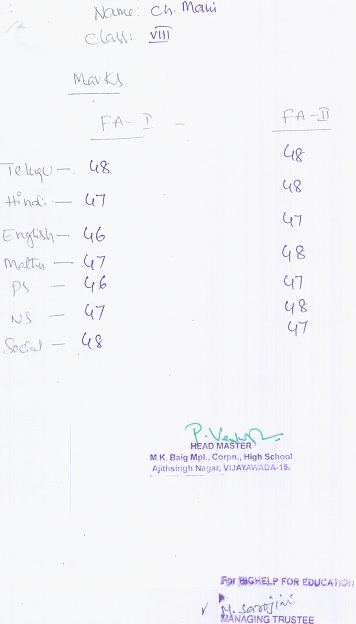 Name: Ch. Mani
Class: VIII
Marks
FA-I - FA-II
Telugu - 48 48
Hindi - 47 48
English - 46 47
Maths - 47 48
PS - 46 47
NS - 47 48
Social - 48 47
HEAD MASTER
M.K. Baig Mpl., Corpn., High School
Ajithsingh Nagar, VIJAYAWADA-15.
For BIGHELP FOR EDUCATION
M. Sarojini
MANAGING TRUSTEE